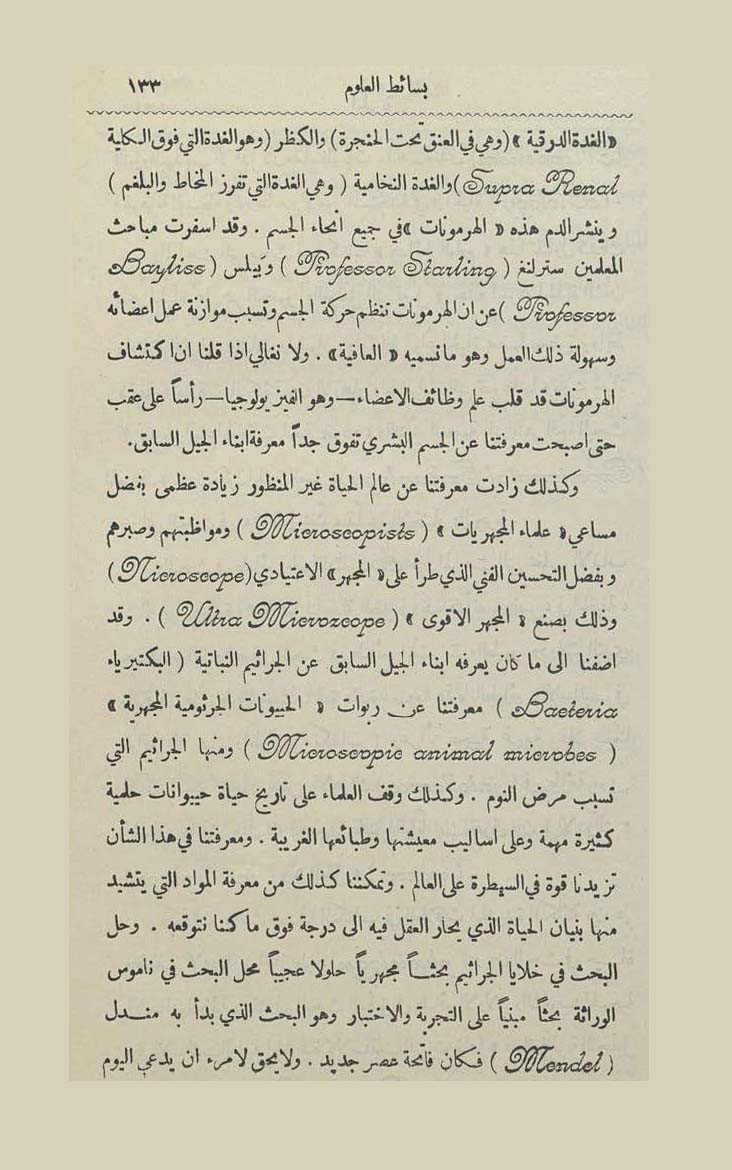 بسائط العلوم ١٣٣
«الغدة الدرقية» (وهي في العنق تحت الحنجرة) والكظر (وهو الغدة التي فوق الكلية
Supra Renal) والغدة النخامية (وهي الغدة التي تفرز المخاط والبلغم)
وينشر الدم هذه «الهرمونات» في جميع انحاء الجسم . وقد اسفرت مباحث
المعلمين سترلنغ (Professor Starling) وَبيلس (Bayliss
Professor) عن ان الهرمونات تنظم حركة الجسم وتسبب موازنة عمل اعضائه
وسهولة ذلك العمل وهو ما نسميه «العافية» . ولا نغالي اذا قلنا ان اكتشاف
الهرمونات قد قلب علم وظائف الاعضاء — وهو الفيزيولوجيا — رأساً على عقب
حتى اصبحت معرفتنا عن الجسم البشري تفوق جداً معرفة ابناء الجيل السابق.
وكذلك زادت معرفتنا عن عالم الحياة غير المنظور زيادة عظمى بفضل
مساعي «علماء المجهريات» (Microscopists) ومواظبتهم وصبرهم
وبفضل التحسين الفني الذي طرأ على «المجهر» الاعتيادي (Nicroscope)
وذلك بصنع «المجهر الاقوى» (Ultra Microzcope) . وقد
اضفنا الى ما كان يعرفه ابناء الجيل السابق عن الجراثيم النباتية (البكتيرياء
Bacteria) معرفتنا عن ربوات «الحييونات الجرثومية المجهرية»
(Microscopic animal microbes) ومنها الجراثيم التي
تسبب مرض النوم . وكذلك وقف العلماء على تاريخ حياة حييوانات حلمية
كثيرة مهمة وعلى اساليب معيشتها وطبائعها الغريبة . ومعرفتنا في هذا الشأن
تزيدنا قوة في السيطرة على العالم . وتمكننا كذلك من معرفة المواد التي يتشيد
منها بنيان الحياة الذي يحار العقل فيه الى درجة فوق ما كنا نتوقعه . وحل
البحث في خلايا الجراثيم بحثاً مجهرياً حلولا عجيباً محل البحث في ناموس
الوراثة بحثاً مبنياً على التجربة والاختبار وهو البحث الذي بدأ به منـدل
(Mendel) فكان فاتحة عصر جديد . ولا يحق لامرء ان يدعي اليوم